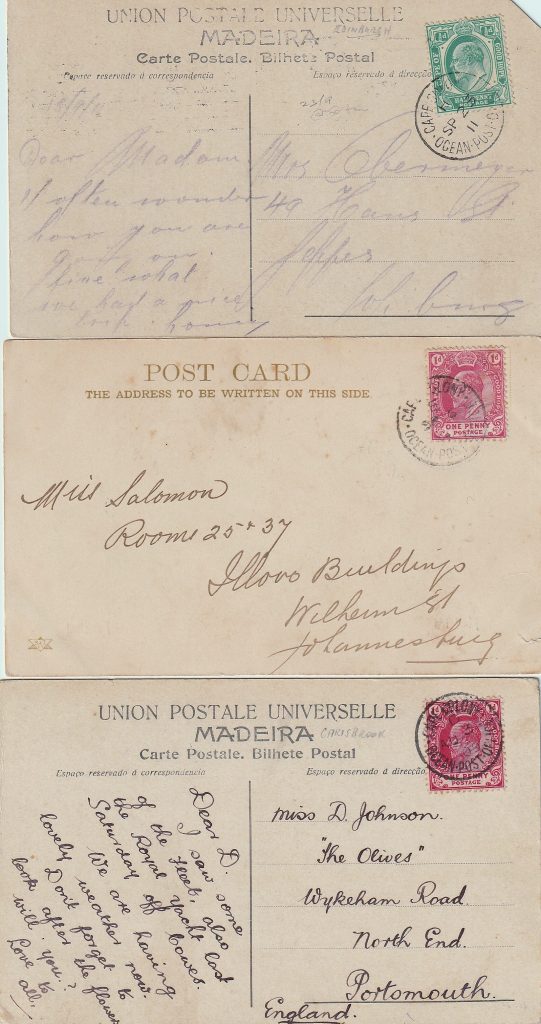 UNION POSTALE UNIVERSELLE
EDINBURGH
MADEIRA
Carte Postale. Bilhete Postal
Espaço reservado á correspondencia
Espaço reservado á direcção
HALF PENNY
POSTAGE
CAPE
SP 11
OCEAN-POST-O
Dear Madam
I often wonder
how you are
fine what
we had a nice
trip home
Mrs Obermeyer
49 Hans St
Jo'burg
POST CARD
THE ADDRESS TO BE WRITTEN ON THIS SIDE
1d
ONE PENNY
POSTAGE
CAPE COLONY
OCEAN-POST
Miss Salomon
Rooms 25 + 37
Illovo Buildings
Wilhelm St
Johannesburg
UNION POSTALE UNIVERSELLE
MADEIRA
CARISBROOK
Carte Postale. Bilhete Postal
Espaço reservado á correspondencia
Espaço reservado á direcção
CAPE COLONY
OCEAN-POST OF
ONE PENNY
POSTAGE
Dear D.
I saw some
of the Fleet, also
the Royal Yacht last
Saturday off Cowes.
We are having
lovely weather now.
Don't forget to
look after the flowers
will you?
Love to
all.
Miss D. Johnson.
"The Olives"
Wykeham Road.
North End.
Portsmouth.
England.